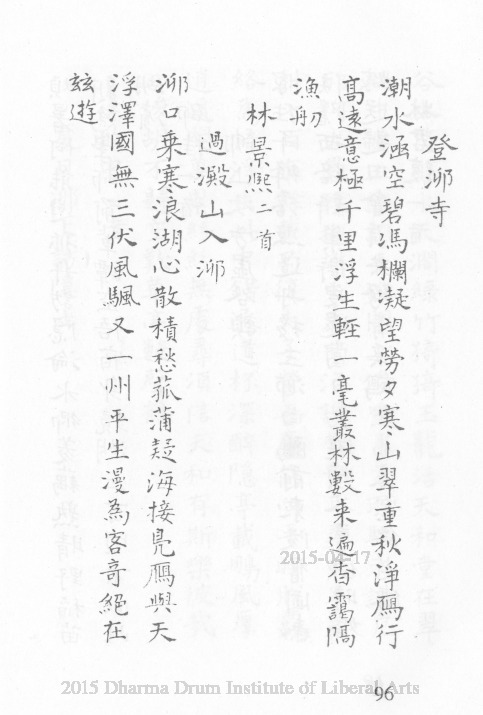 登泖寺
潮水涵空碧馮欄凝望勞夕寒山翠重秋淨鴈行
高遠意極千里浮生輕一毫叢林數来遍杳靄隔
漁舠
林景熙二首
過澱山入泖
泖口乗寒浪湖心散積愁菰蒲疑海接鳧鴈與天
浮澤國無三伏風颿又一州平生漫為客奇絕在
兹遊
2015-04-17
2015 Dharma Drum Institute of Liberal Arts
96